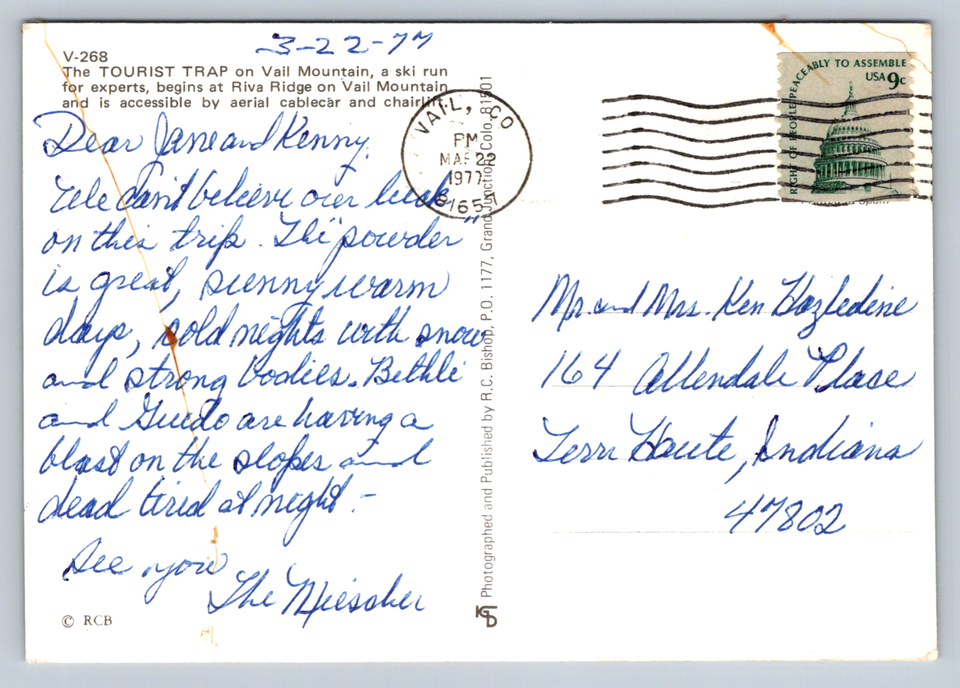 3-22-77
V-268
The TOURIST TRAP on Vail Mountain, a ski run
for experts, begins at Riva Ridge on Vail Mountain
and is accessible by aerial cablecar and chairlift.
Dear Jane and Kenny,
We can't believe our luck
on this trip. The "powder"
is great, sunny warm
days, cold nights with snow
and strong bodies. Bethli
and Guido are having a
blast on the slopes and
dead tired at night -
See you
The Miescher
© RCB
Photographed and Published by R.C. Bishop, P.O. 1177, Grand Junction, Colo. 81501
KGD
VAIL, CO
PM
MAR 22
1977
81657
RIGHT OF PEOPLE PEACEABLY TO ASSEMBLE
USA 9c
Mr. and Mrs. Ken Hazledine
164 Allendale Place
Terre Haute, Indiana
47802